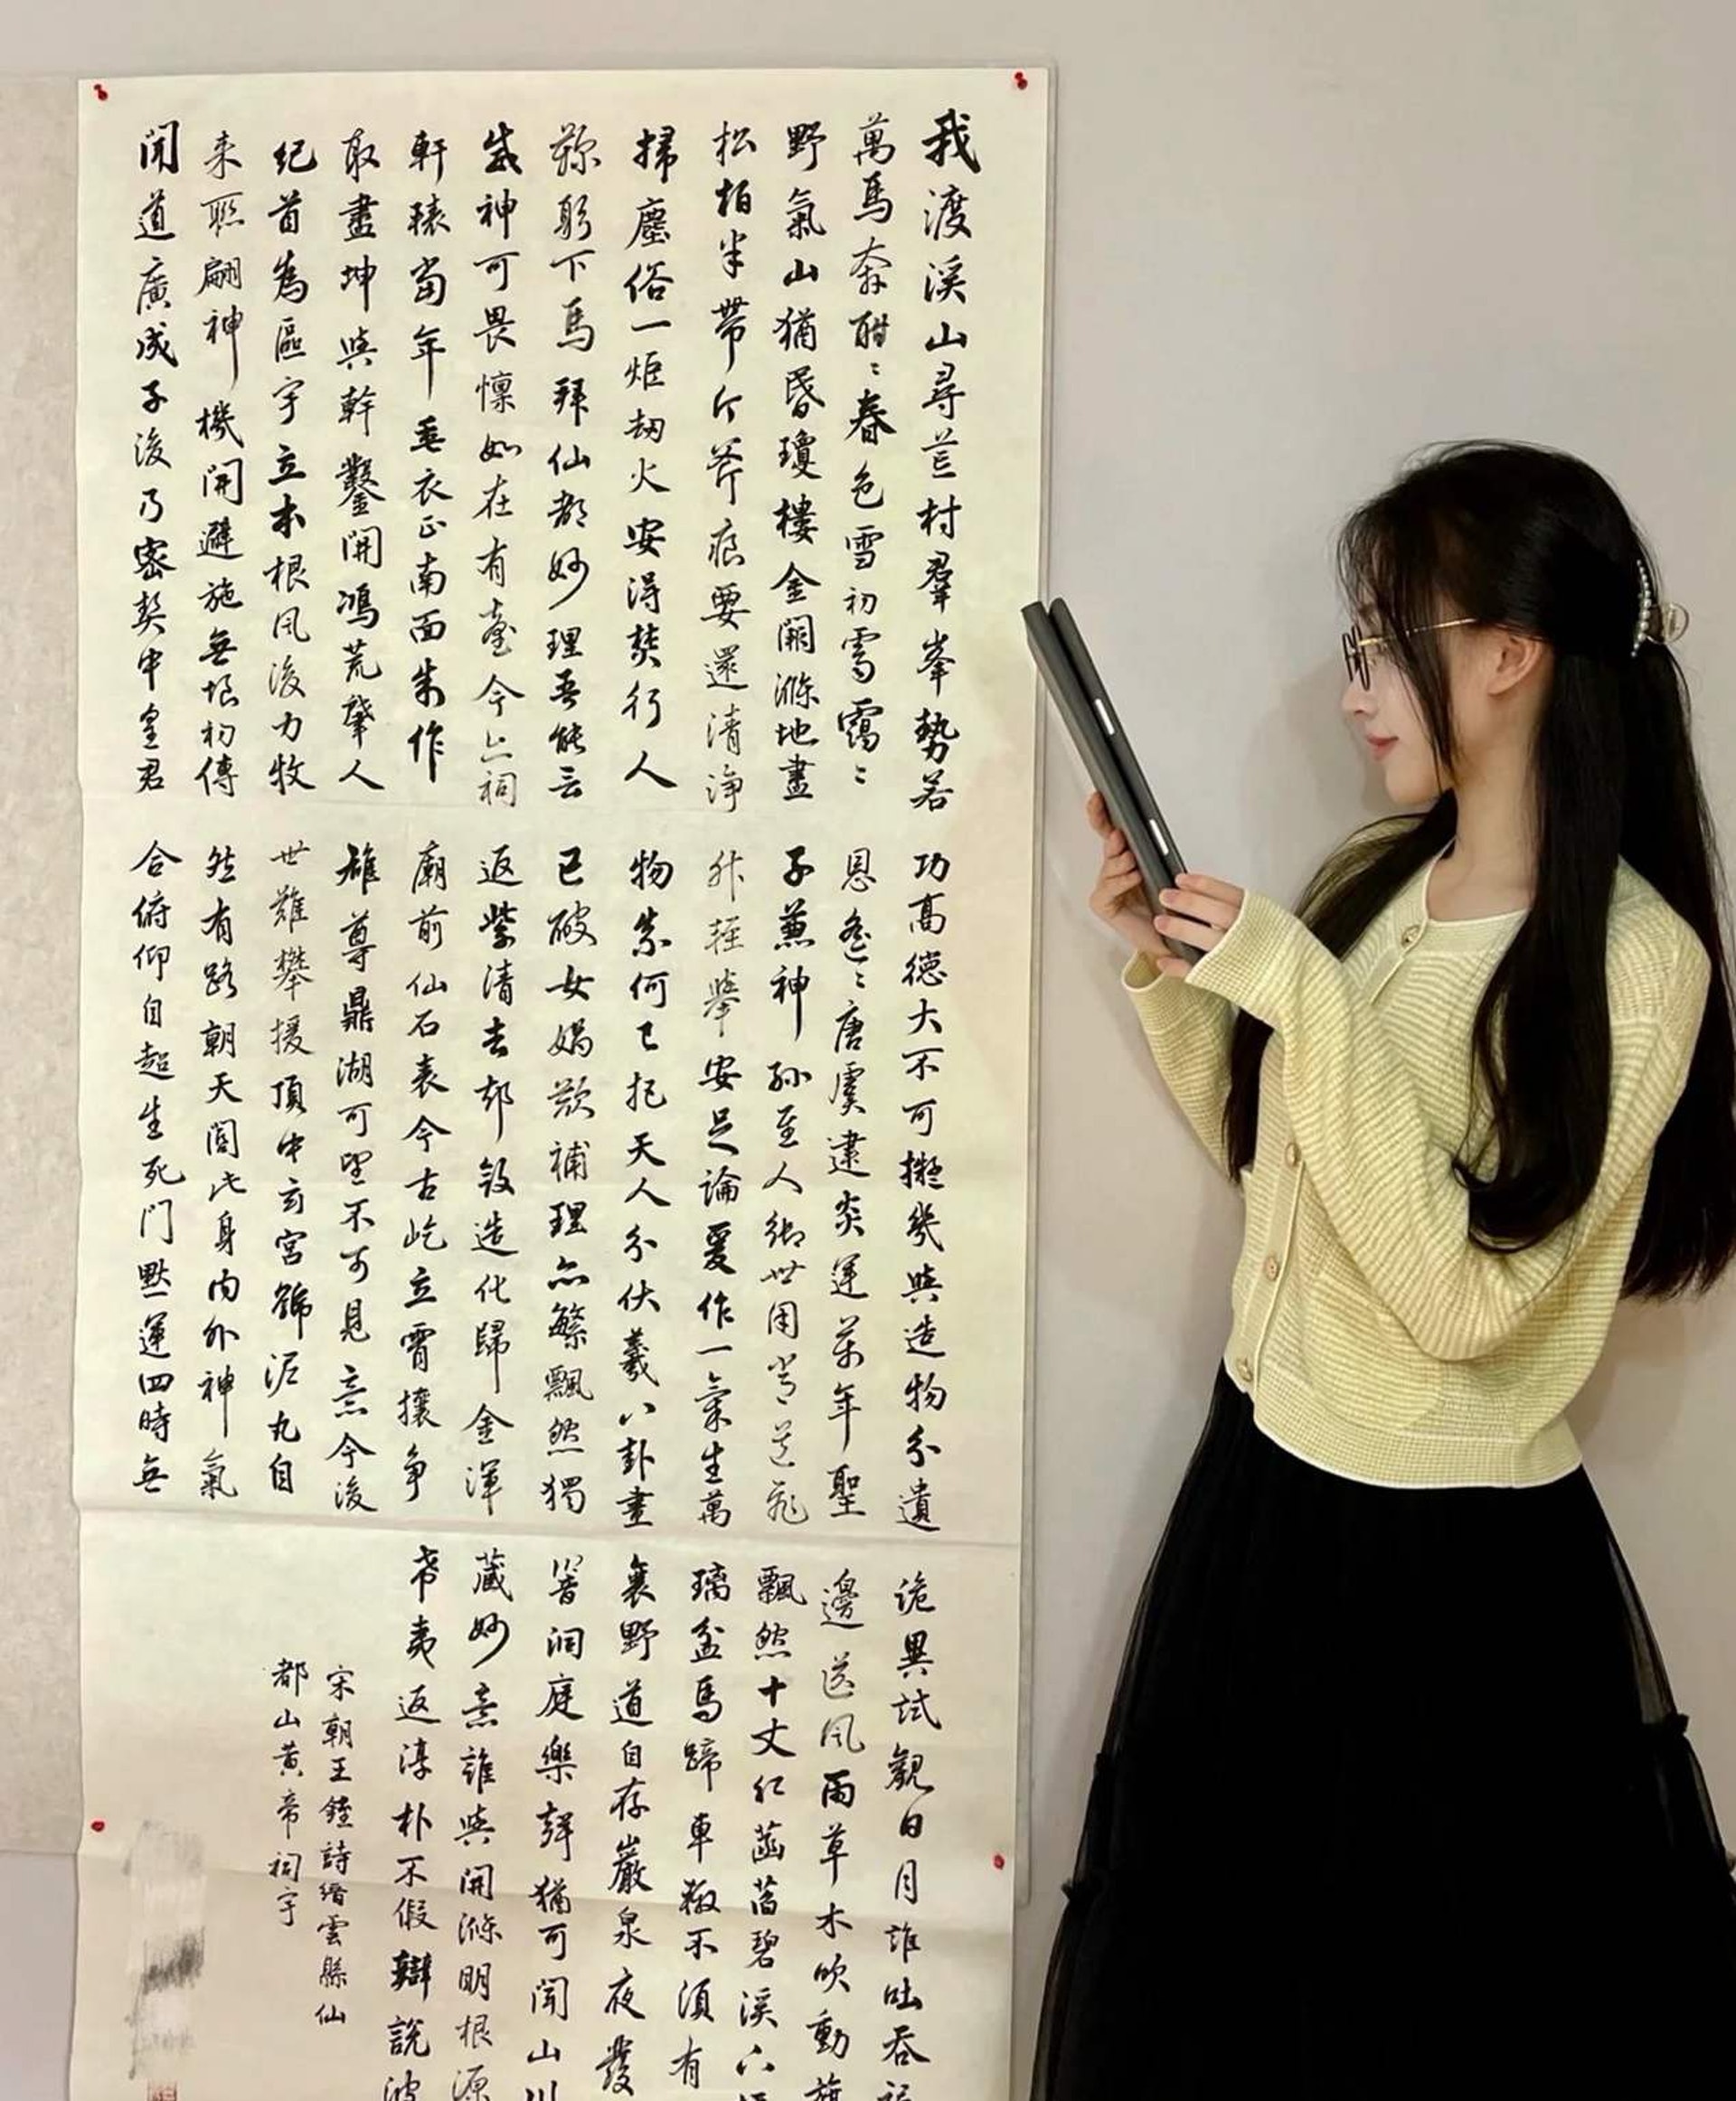 我渡溪山尋芒村羣峯勢若
萬馬奔酣〻春色雪初霽靄〻
野氣山猶昏瓊樓金闕滌地盡
松柏半帶斤斧痕要還清淨
掃塵俗一炬劫火安得焚行人
鞠躬下馬拜仙都妙理吾能言
威神可畏懔如在有臺今亡祠
軒轅當年垂衣正南面制作
取盡坤與乾鑿開鴻荒肇人
紀首為區宇立本根風後力牧
来聯翩神機開避施無垠初傳
聞道廣成子後乃密契中皇君
功高德大不可擬幾與造物分遺
恩悠〻唐虞逮炎運萬年聖
子兼神孫至人御世固嘗道飛
升輕舉安足論爰作一氣生萬
物象何已抱天人分伏羲八卦畫
已破女媧欲補理亦繁飄然獨
返紫清去却斂造化歸金渾
廟前仙石表今古屹立霄壤爭
雄尊鼎湖可望不可見意今後
世難攀援頂中玄宮號泥丸自
然有路朝天閽此身内外神氣
合俯仰自超生死門默運四時無
詭異試觀日月誰吐吞
邊送風雨草木吹動旗
飄然十丈紅菡萏碧溪六
璃盆馬蹄車轍不須有
襄野道自存巖泉夜發
響洞庭樂聲猶可聞山川
藏妙意誰與開滌明根源
希夷返淳朴不假辯說波
宋朝王銍詩縉雲縣仙
都山黃帝祠宇